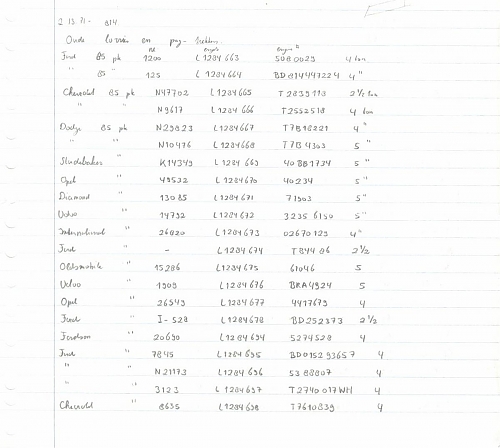 2.13.71 - 814
Oude en pag-
NR
Ford 85 pk 1200 L1284663 5080029 4 ton
" 85 " 125 L1284664 BD814447224 4 "
Chevrolet 85 pk N47702 L1284665 T2839118 2 1/2 ton
" " N9617 L1284666 T2552518 4 ton
Dodge 85 pk N29823 L1284667 T7B18221 4 "
" " N10476 L1284668 T7B4303 5 "
Studebaker " K14349 L1284669 40BB1734 5 "
Opel " 49532 L1284670 40234 5 "
Diamond " 13085 L1284671 71303 5 "
Volvo " 14792 L1284672 3235 6150 5 "
International " 26820 L1284673 02670129 4 "
Ford " - L1284674 T844 86 2 1/2
Oldsmobile " 15286 L1284675 61046 5
Volvo " 1909 L1284676 BRA4924 5
Opel " 26543 L1284677 4417679 4
Ford " I-528 L1284678 BD252373 2 1/2
" 20690 L1284694 5274528 4
Ford " 7845 L1284695 BD015293657 4
" " N21173 L1284696 5388807 4
" " 3123 L1284697 T2740017WH 4
Chevrolet " 8635 L1284698 T7610839 4